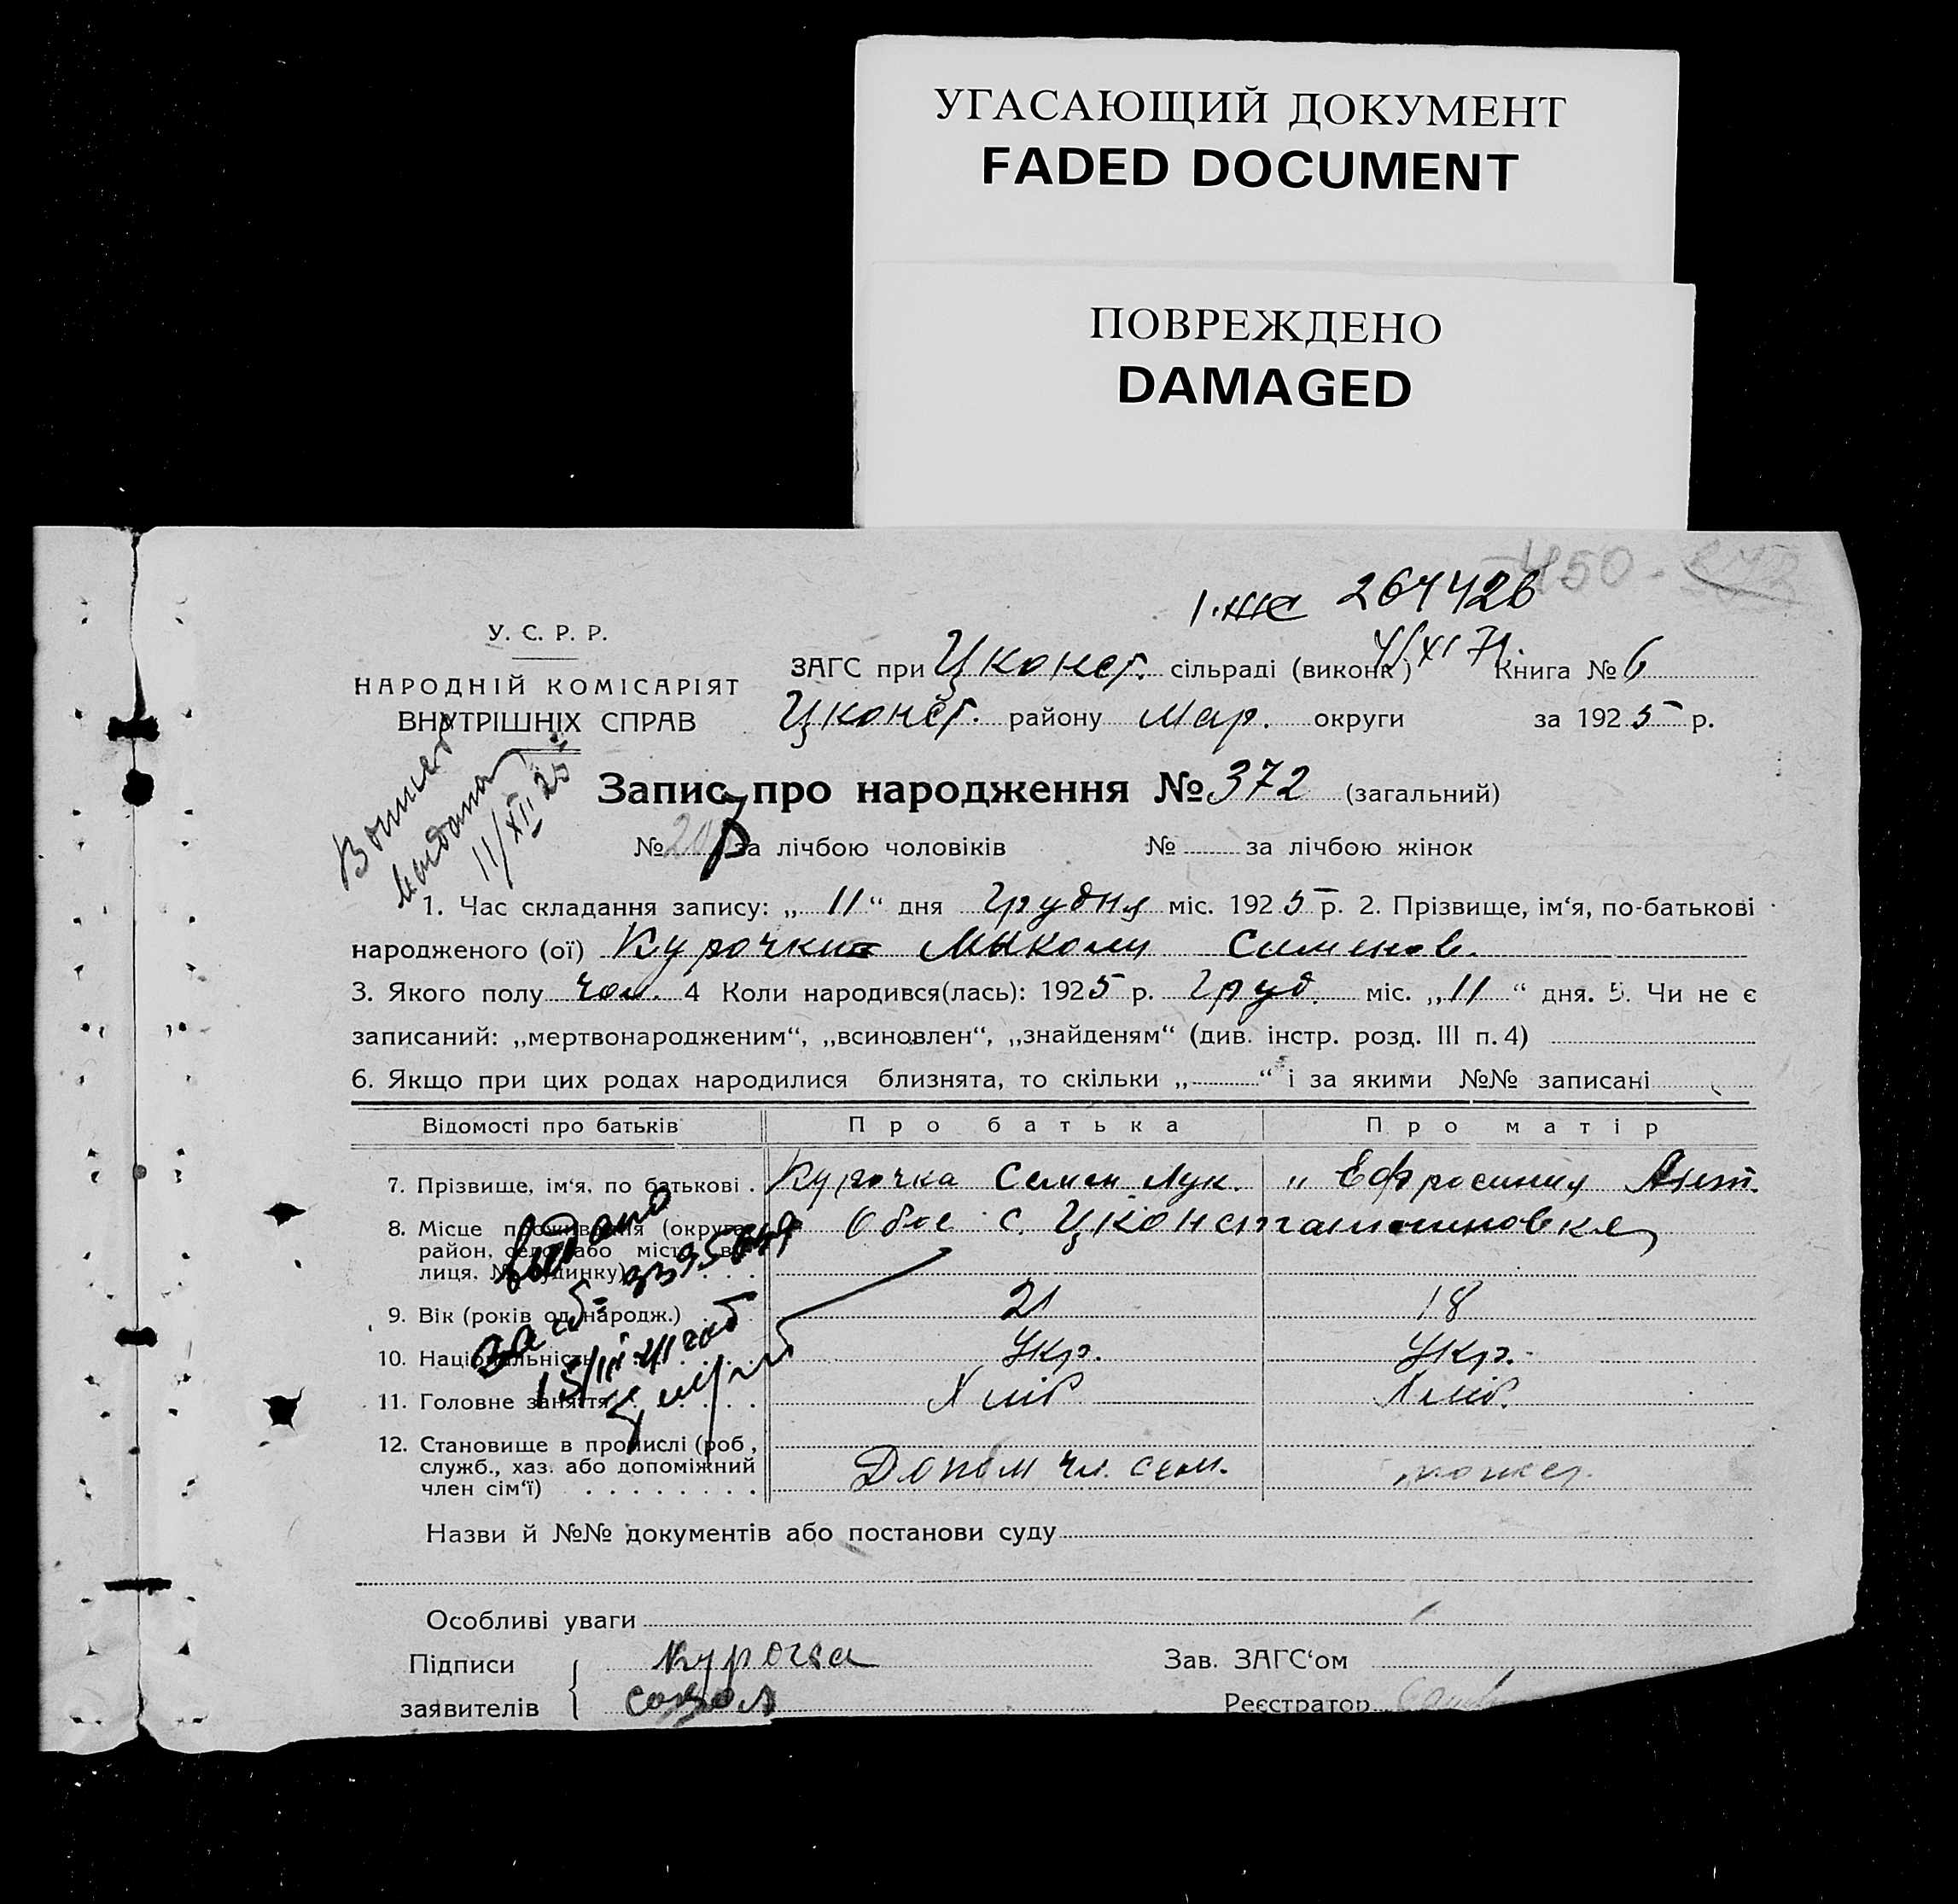 УГАСАЮЩИЙ ДОКУМЕНТ
FADED DOCUMENT
ПОВРЕЖДЕНО
DAMAGED
450.
264426
У. С. Р. Р.
НАРОДНІЙ КОМІСАРІЯТ
ВНУТРІШНІХ СПРАВ
ЗАГС при Цконст. сільраді (виконк) Книга № 6
4/XI 71.
Цконст. району Мар. округи за 1925 р.
11/XII 25
Запис про народження № 372 (загальний)
№ за лічбою чоловіків № за лічбою жінок
1. Час складання запису: „ 11 “ дня Грудня міс. 1925 р. 2. Прізвище, ім‘я, по-батькові
народженого (ої) Курочки Мыкола Сименов.
3. Якого полу чол. 4 Коли народився(лась): 1925 р. Груд. міс. „ 11 “ дня. 5. Чи не є
записаний: „мертвонародженим“, „всиновлен“, „знайденям“ (див. інстр. розд. III п. 4)
6. Якщо при цих родах народилися близнята, то скільки „ “ і за якими №№ записані
Відомості про батьків Про батька Про матір
7. Прізвище, ім‘я, по батькові . Курочка Семен Лук. „ Ефросиния Ант.
8. Місце проживання (округа, Обое с. Цконстантиновка
район, село або місто, ву-
лиця, № будинку)
видано
9. Вік (років од народж.) 21 18
10. Національність Укр. Укр.
11. Головне заняття Хліб Хліб.
12. Становище в промислі (роб.,
служб., хаз. або допоміжний Допом чл. сем.
член сім‘ї)
Назви й №№ документів або постанови суду
Особливі уваги
Підписи Курочка Зав. ЗАГС‘ом
заявителів Реєстратор